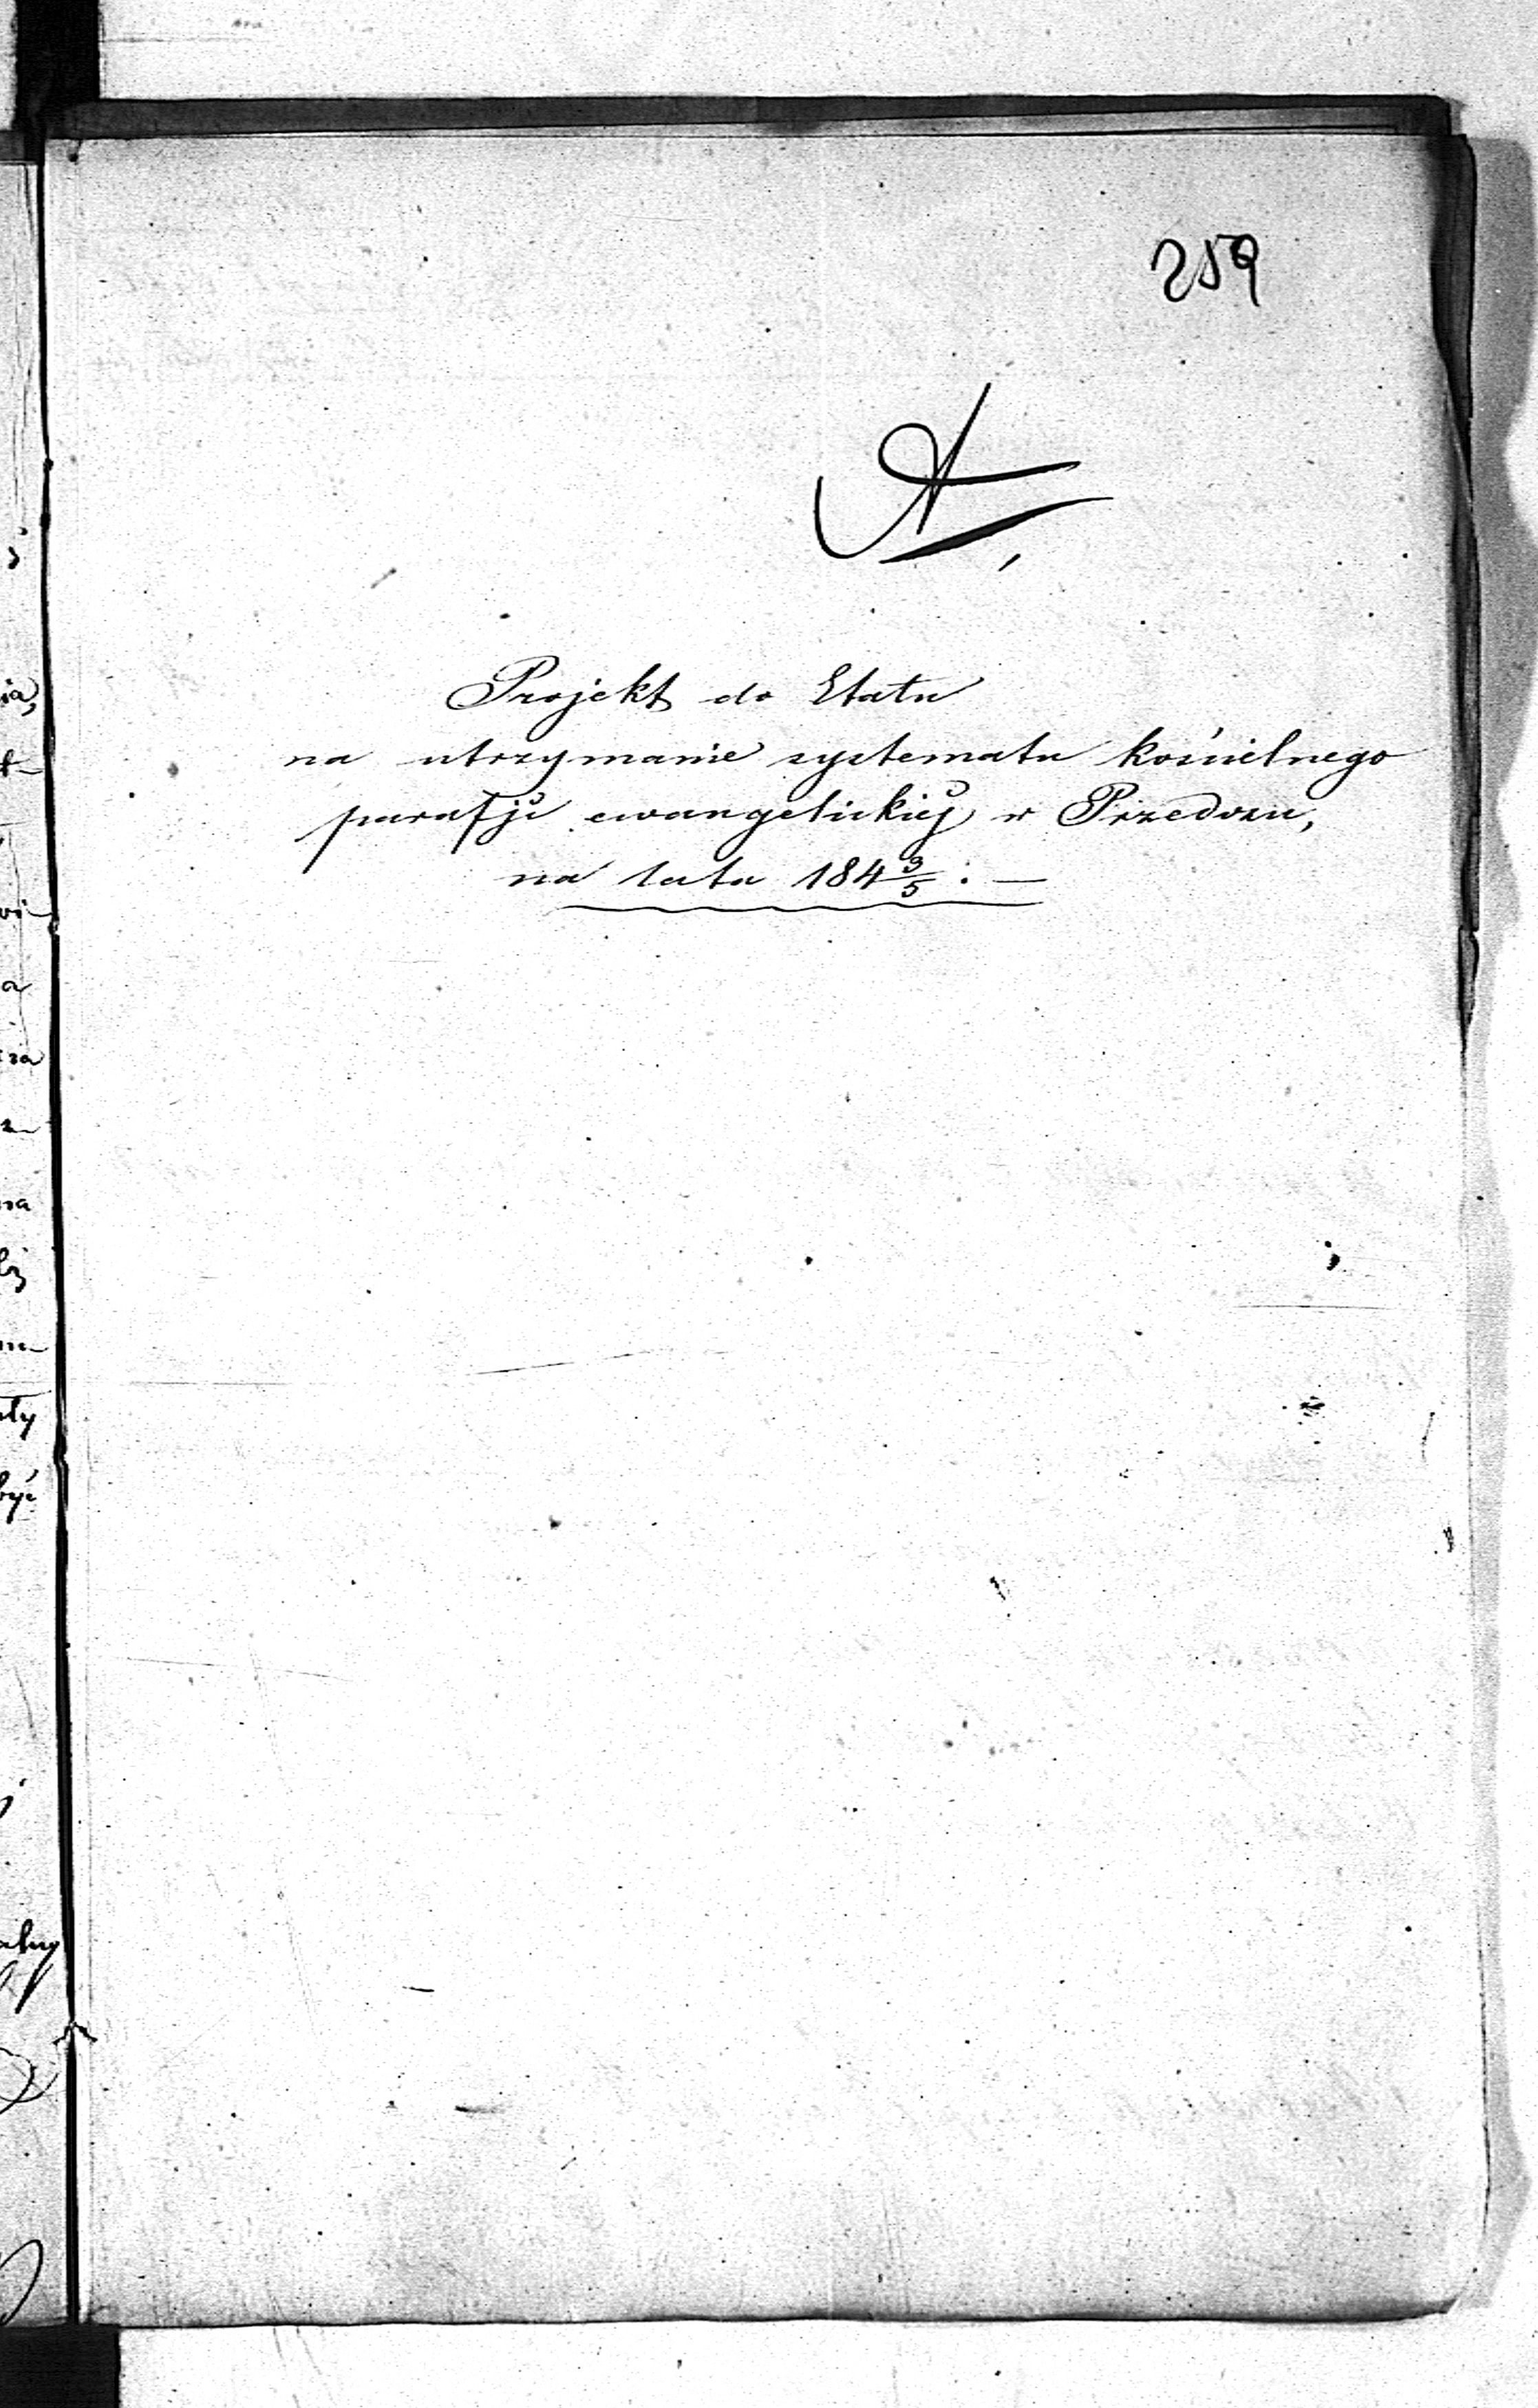 259
A,
Projekt do Etatu
na utrzymanie systematu kościelnego
parafji ewangelickiéj w Przedczu,
na lata 184 3/5 : —